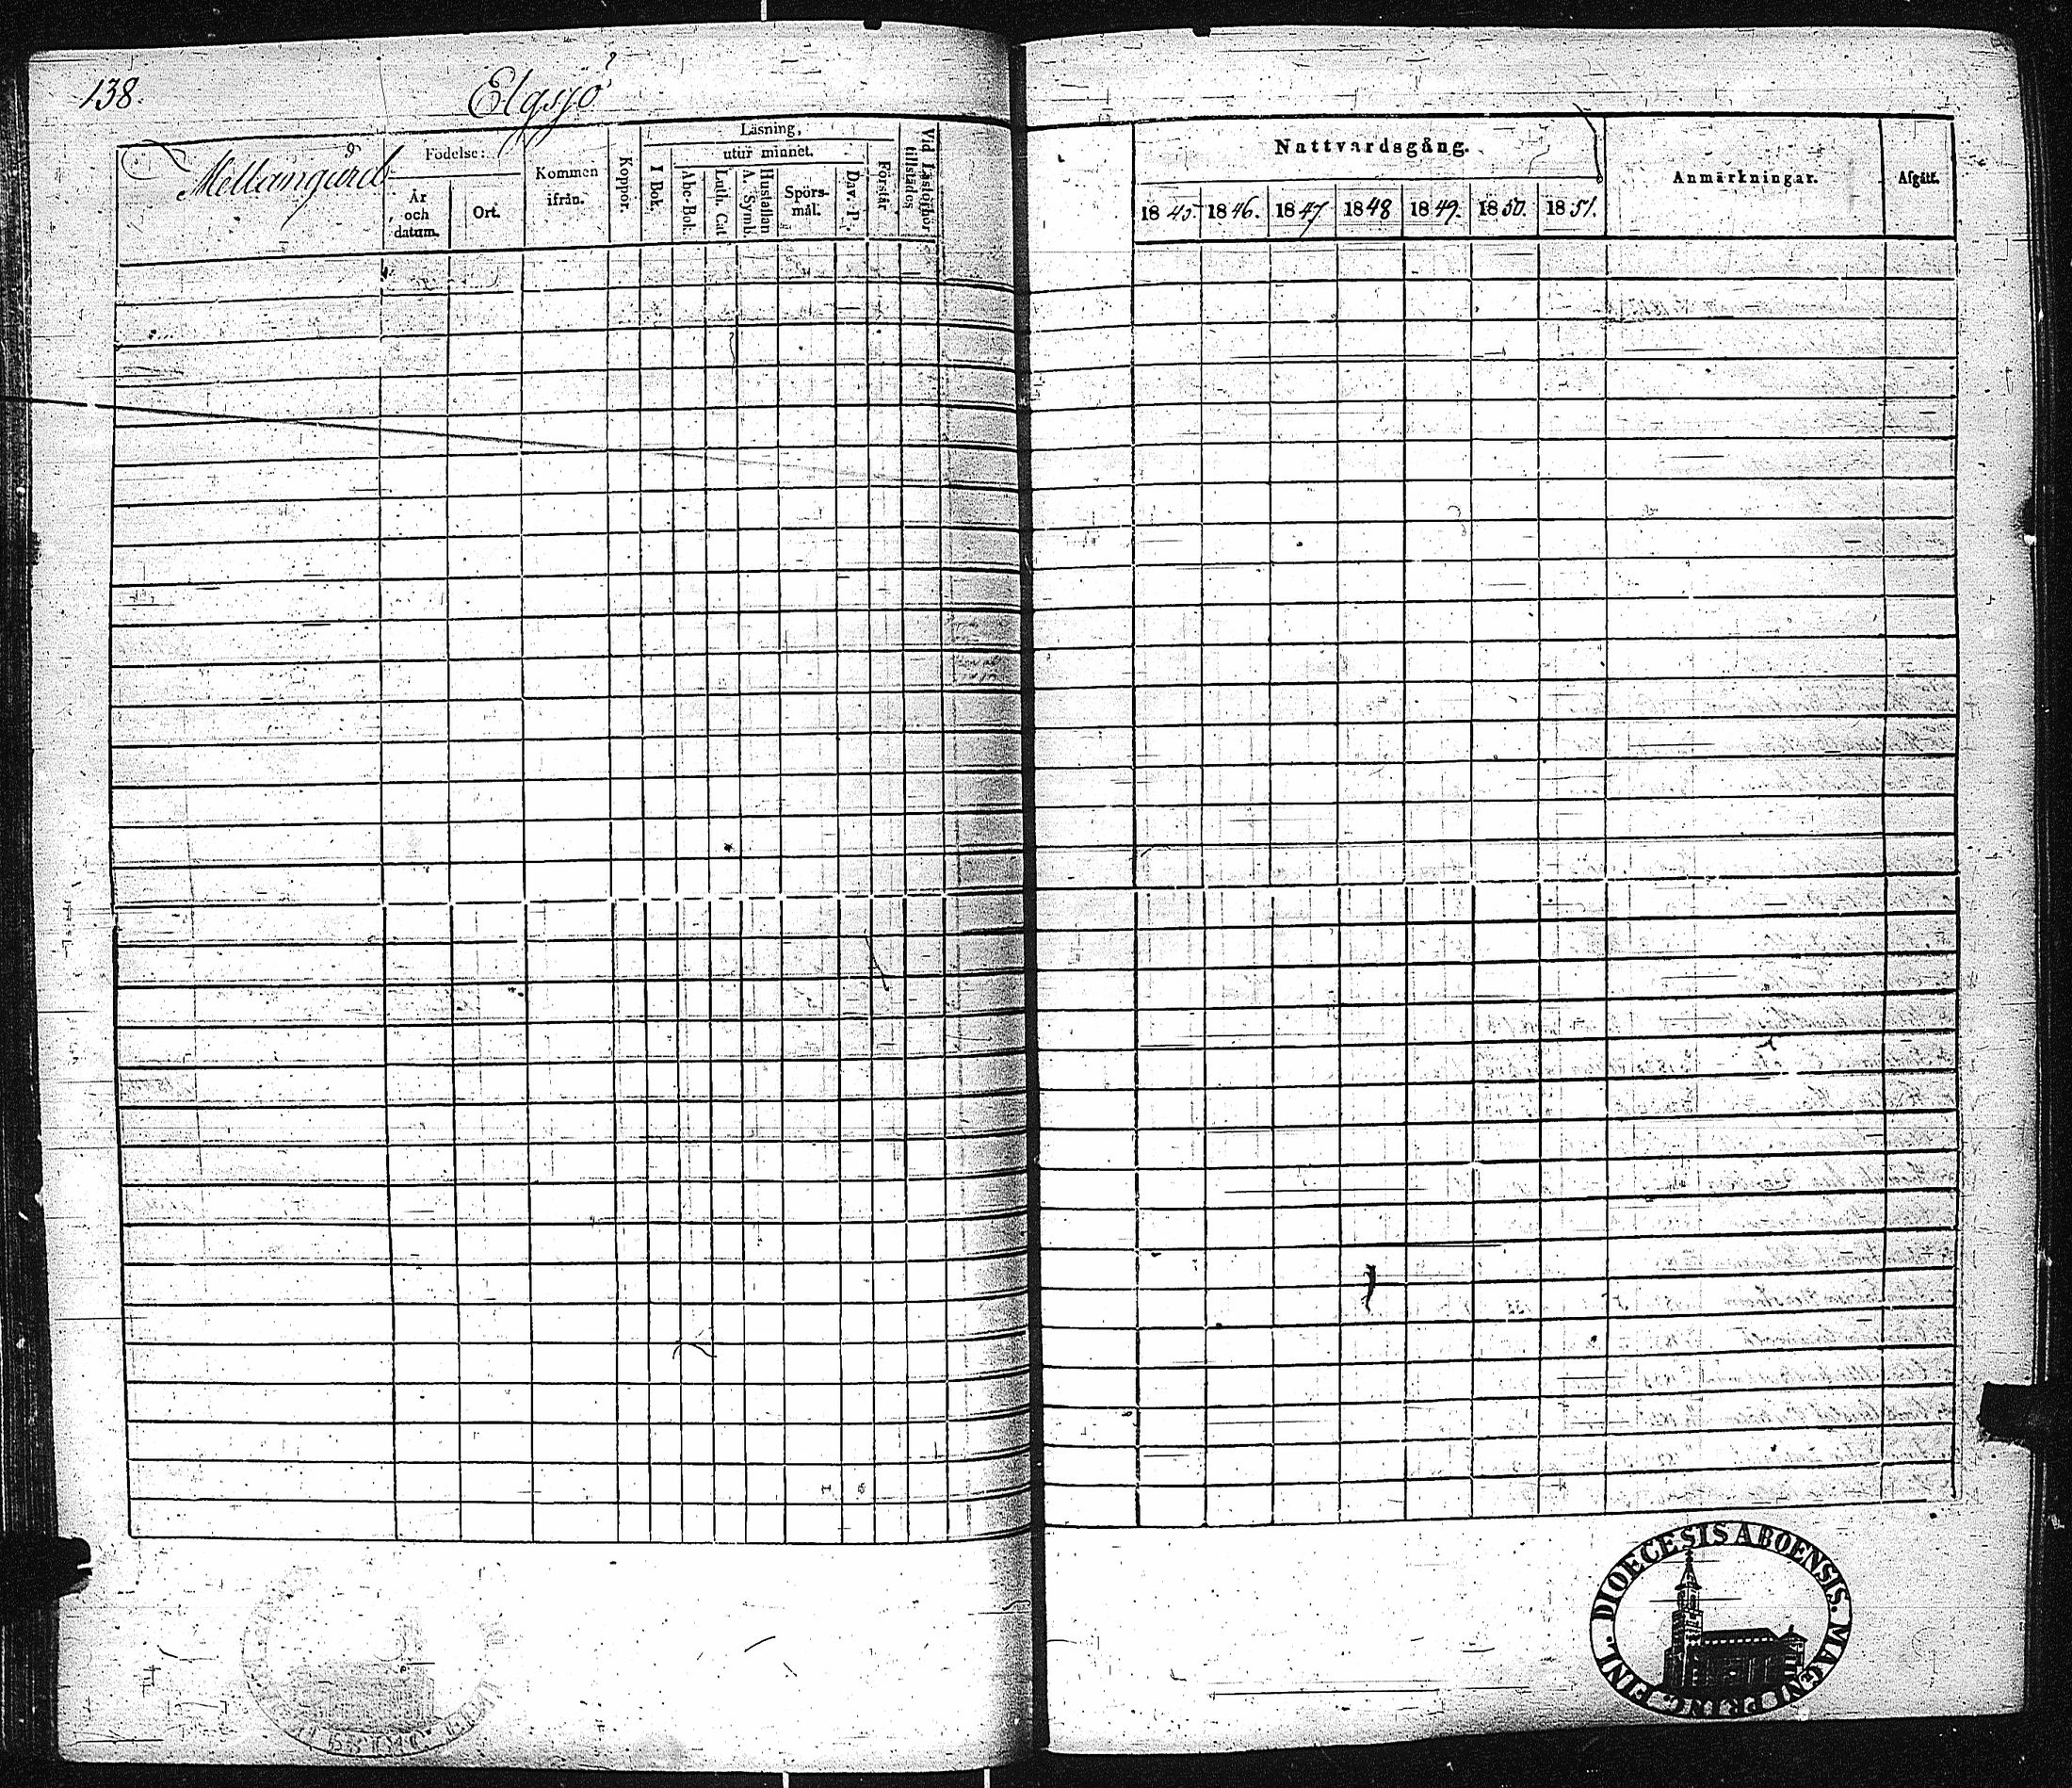 138.
Elgsjö
Mellangård
Födelse:
År
och
datum.
Ort.
Kommen
ifrån.
Koppor.
Läsning,
I Bok.
utur minnet.
Abc-Bok.
Luth. Cat
Hustaflan
A. Symb.
Spörs-
mål.
Dav. P.
Förstår
Vid Läseförhör
tillstädes
Nattvardsgång.
1845. 1846. 1847 1848 1849. 1850. 1851.
Anmärkningar.
Afgått.
DIOECESIS ABOENSIS. MAGNI PRINC. FINL.